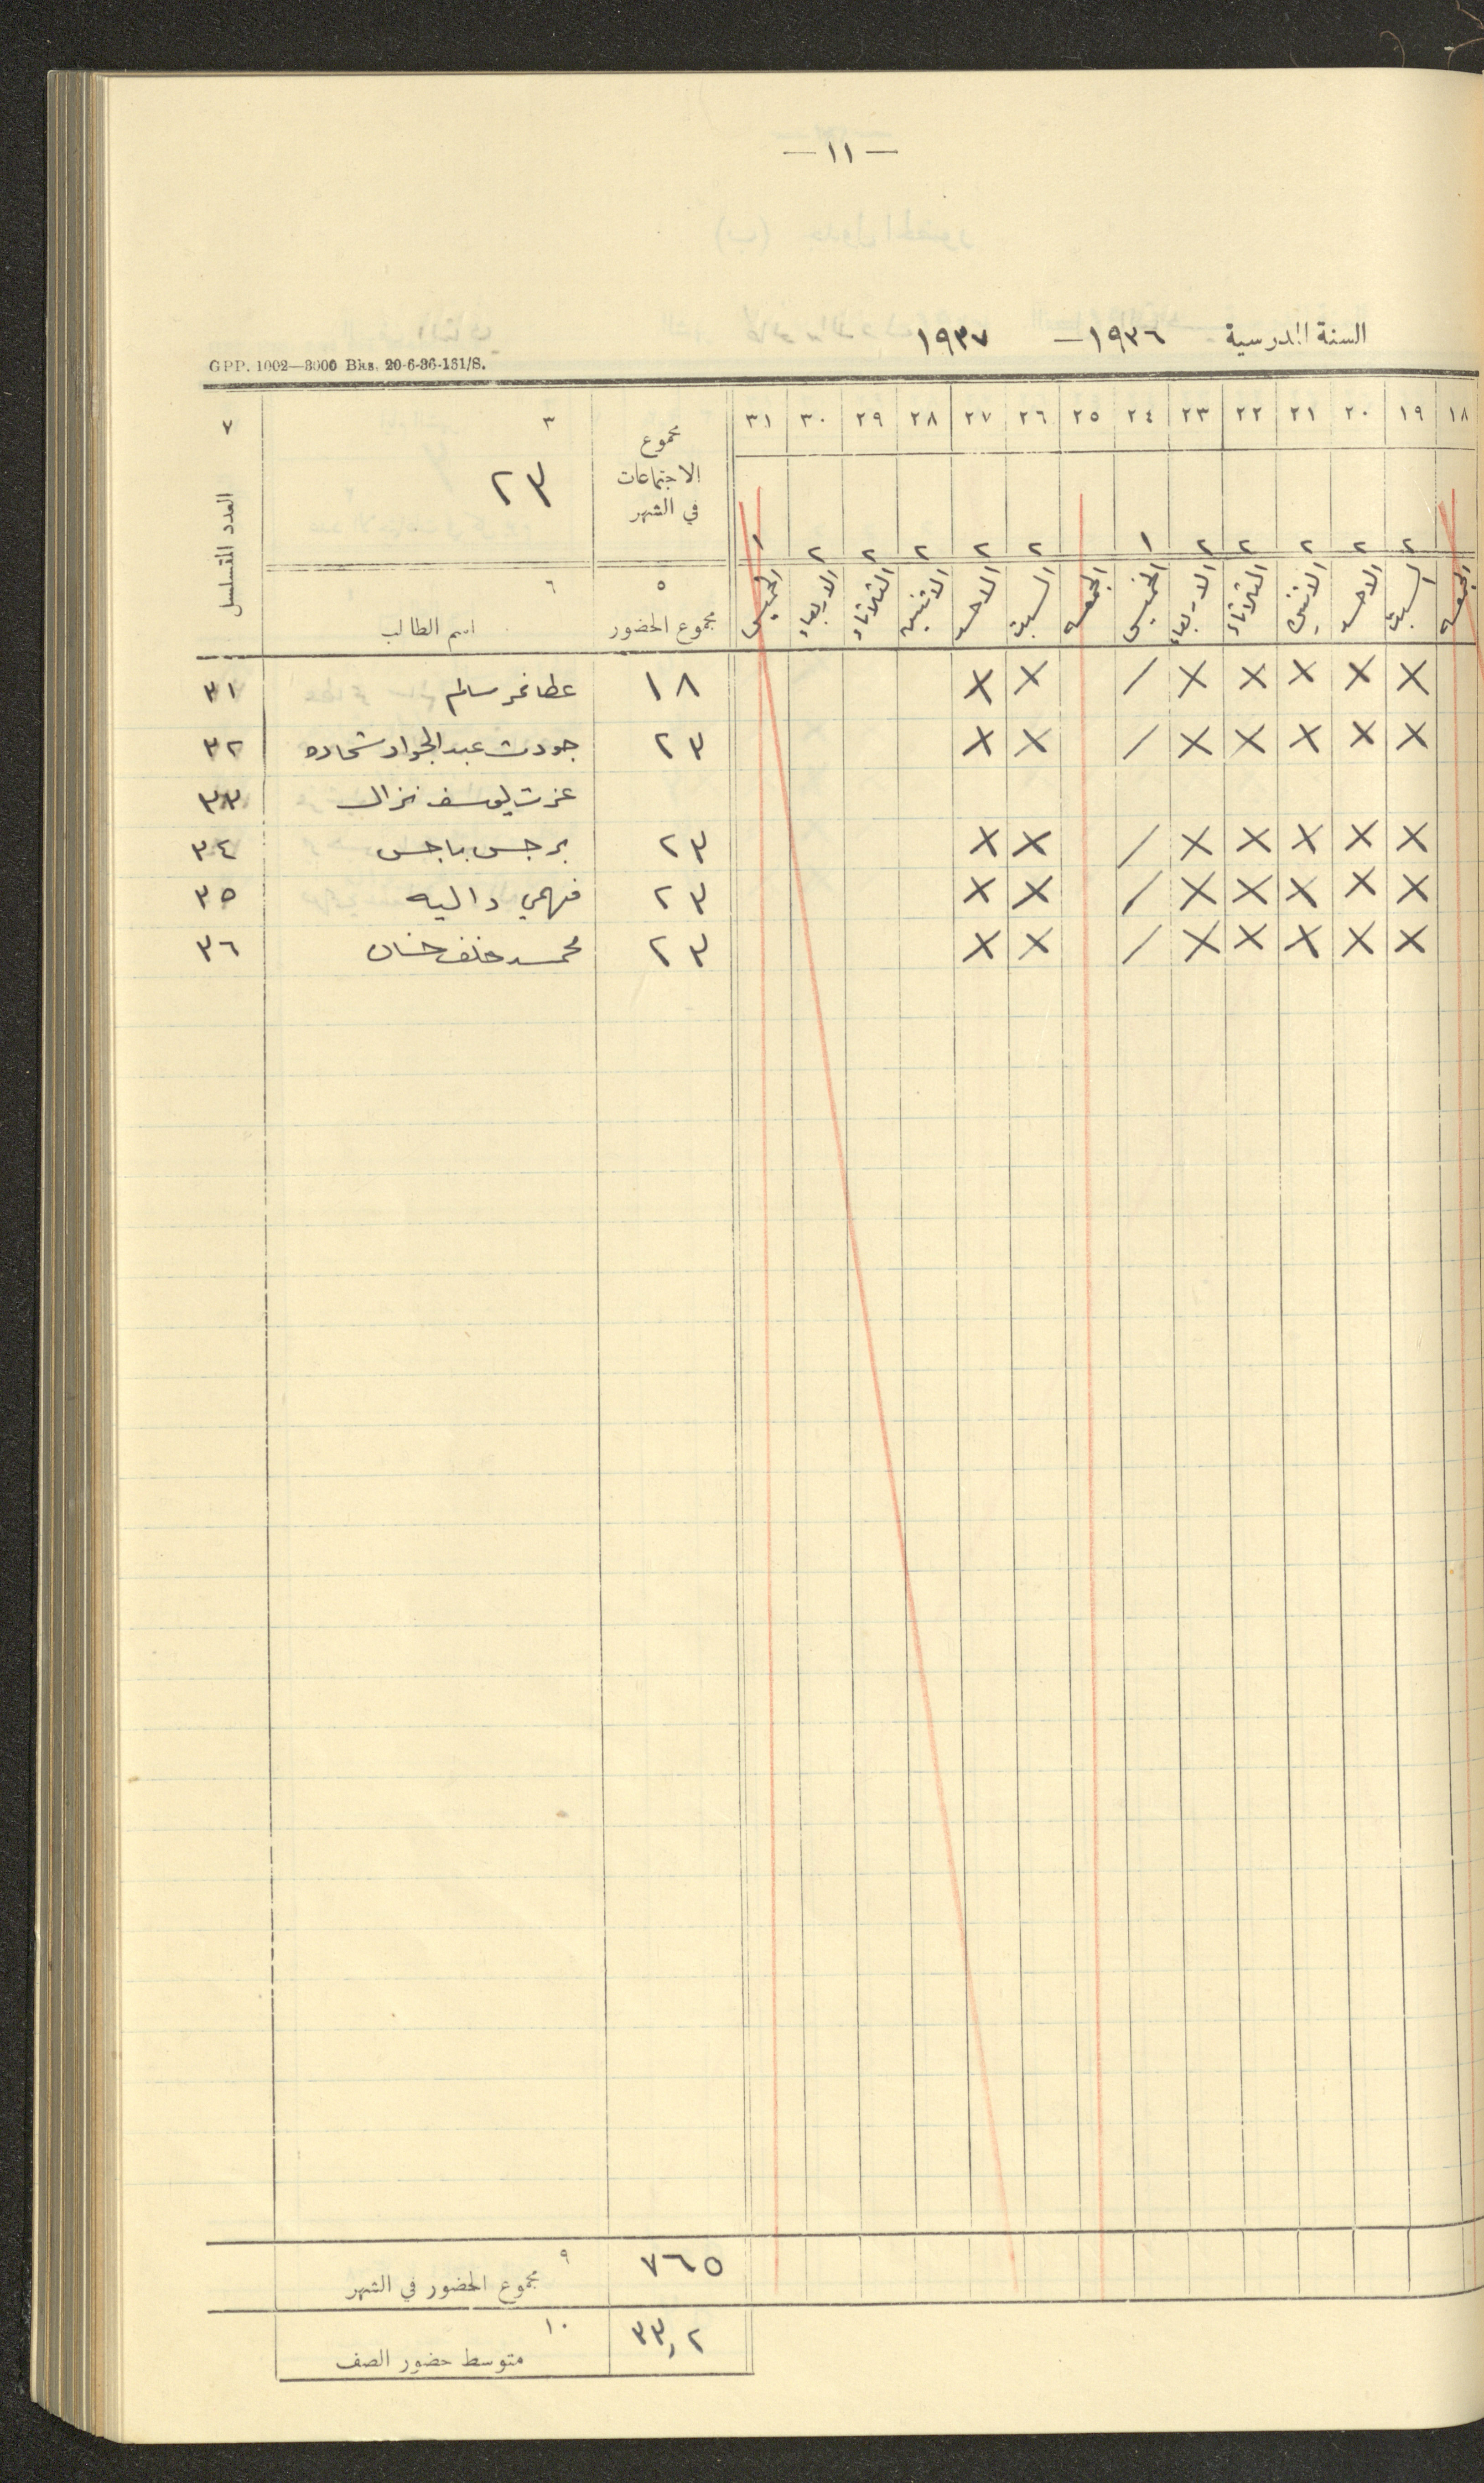 — ١١ —
السنة المدرسية ١٩٣٦ — ١٩٣٧
GPP. 1002—3000 Bks. 20-6-36-161/S.
١٨ ١٩ ٢٠ ٢١ ٢٢ ٢٣ ٢٤ ٢٥ ٢٦ ٢٧ ٢٨ ٢٩ ٣٠ ٣١ مجموع الاجتماعات في الشهر ٣ ٢٣ ٧ العدد المتسلسل
٢ ٢ ٢ ٢ ٢ ١ ٢ ٢ ٢ ٢ ٢ ١
الجمعه السبت الاحد الاثنين الثلاثاء الاربعاء الخميس الجمعه السبت الاحد الاثنين الثلاثاء الاربعاء الخميس ٥ مجموع الحضور ٦ اسم الطالب
X X X X X / X X ١٨ عطا نمر سالم ٣١
X X X X X / X X ٢٣ جودت عبد الجواد شحاده ٣٢
عزت يوسف نزال ٣٣
X X X X X / X X ٢٣ برجس باجس ٣٤
X X X X X / X X ٢٣ فهمي داليه ٣٥
X X X X X / X X ٢٣ محمد خلف حسان ٣٦
٧٦٥ ٩ مجموع الحضور في الشهر
٣٣,٢ ١٠ متوسط حضور الصف